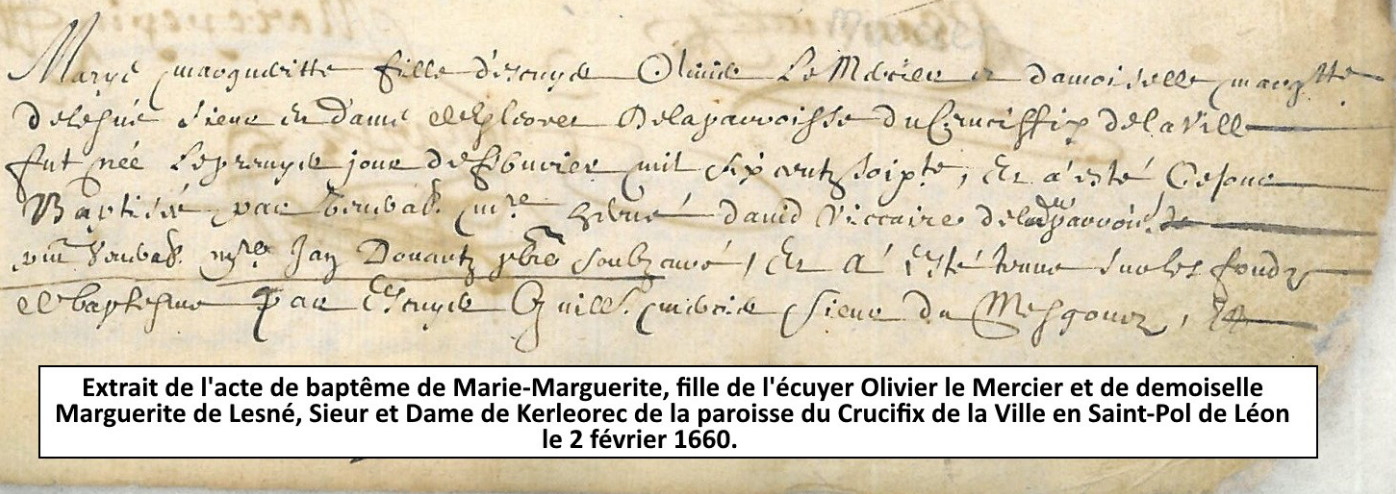 Marye margueritte fille d'escuyer Olivier Le Mercier et damoiselle margtte
delesné sieur et dame de de la parroisse du Cruciffix de la Ville
fut née Le premyer jour de febvrier mil six centz soixte, Et a esté Ce jour
Baptisée par mre hervé david viccaire de lad parroisse
mre Jan ptre soubz curé, Et a esté tenue sur les fondz
de baptesme Par Escuyer Guill. mercier sieur du Mesgouez, Et
Extrait de l'acte de baptême de Marie-Marguerite, fille de l'écuyer Olivier le Mercier et de demoiselle
Marguerite de Lesné, Sieur et Dame de Kerleorec de la paroisse du Crucifix de la Ville en Saint-Pol de Léon
le 2 février 1660.